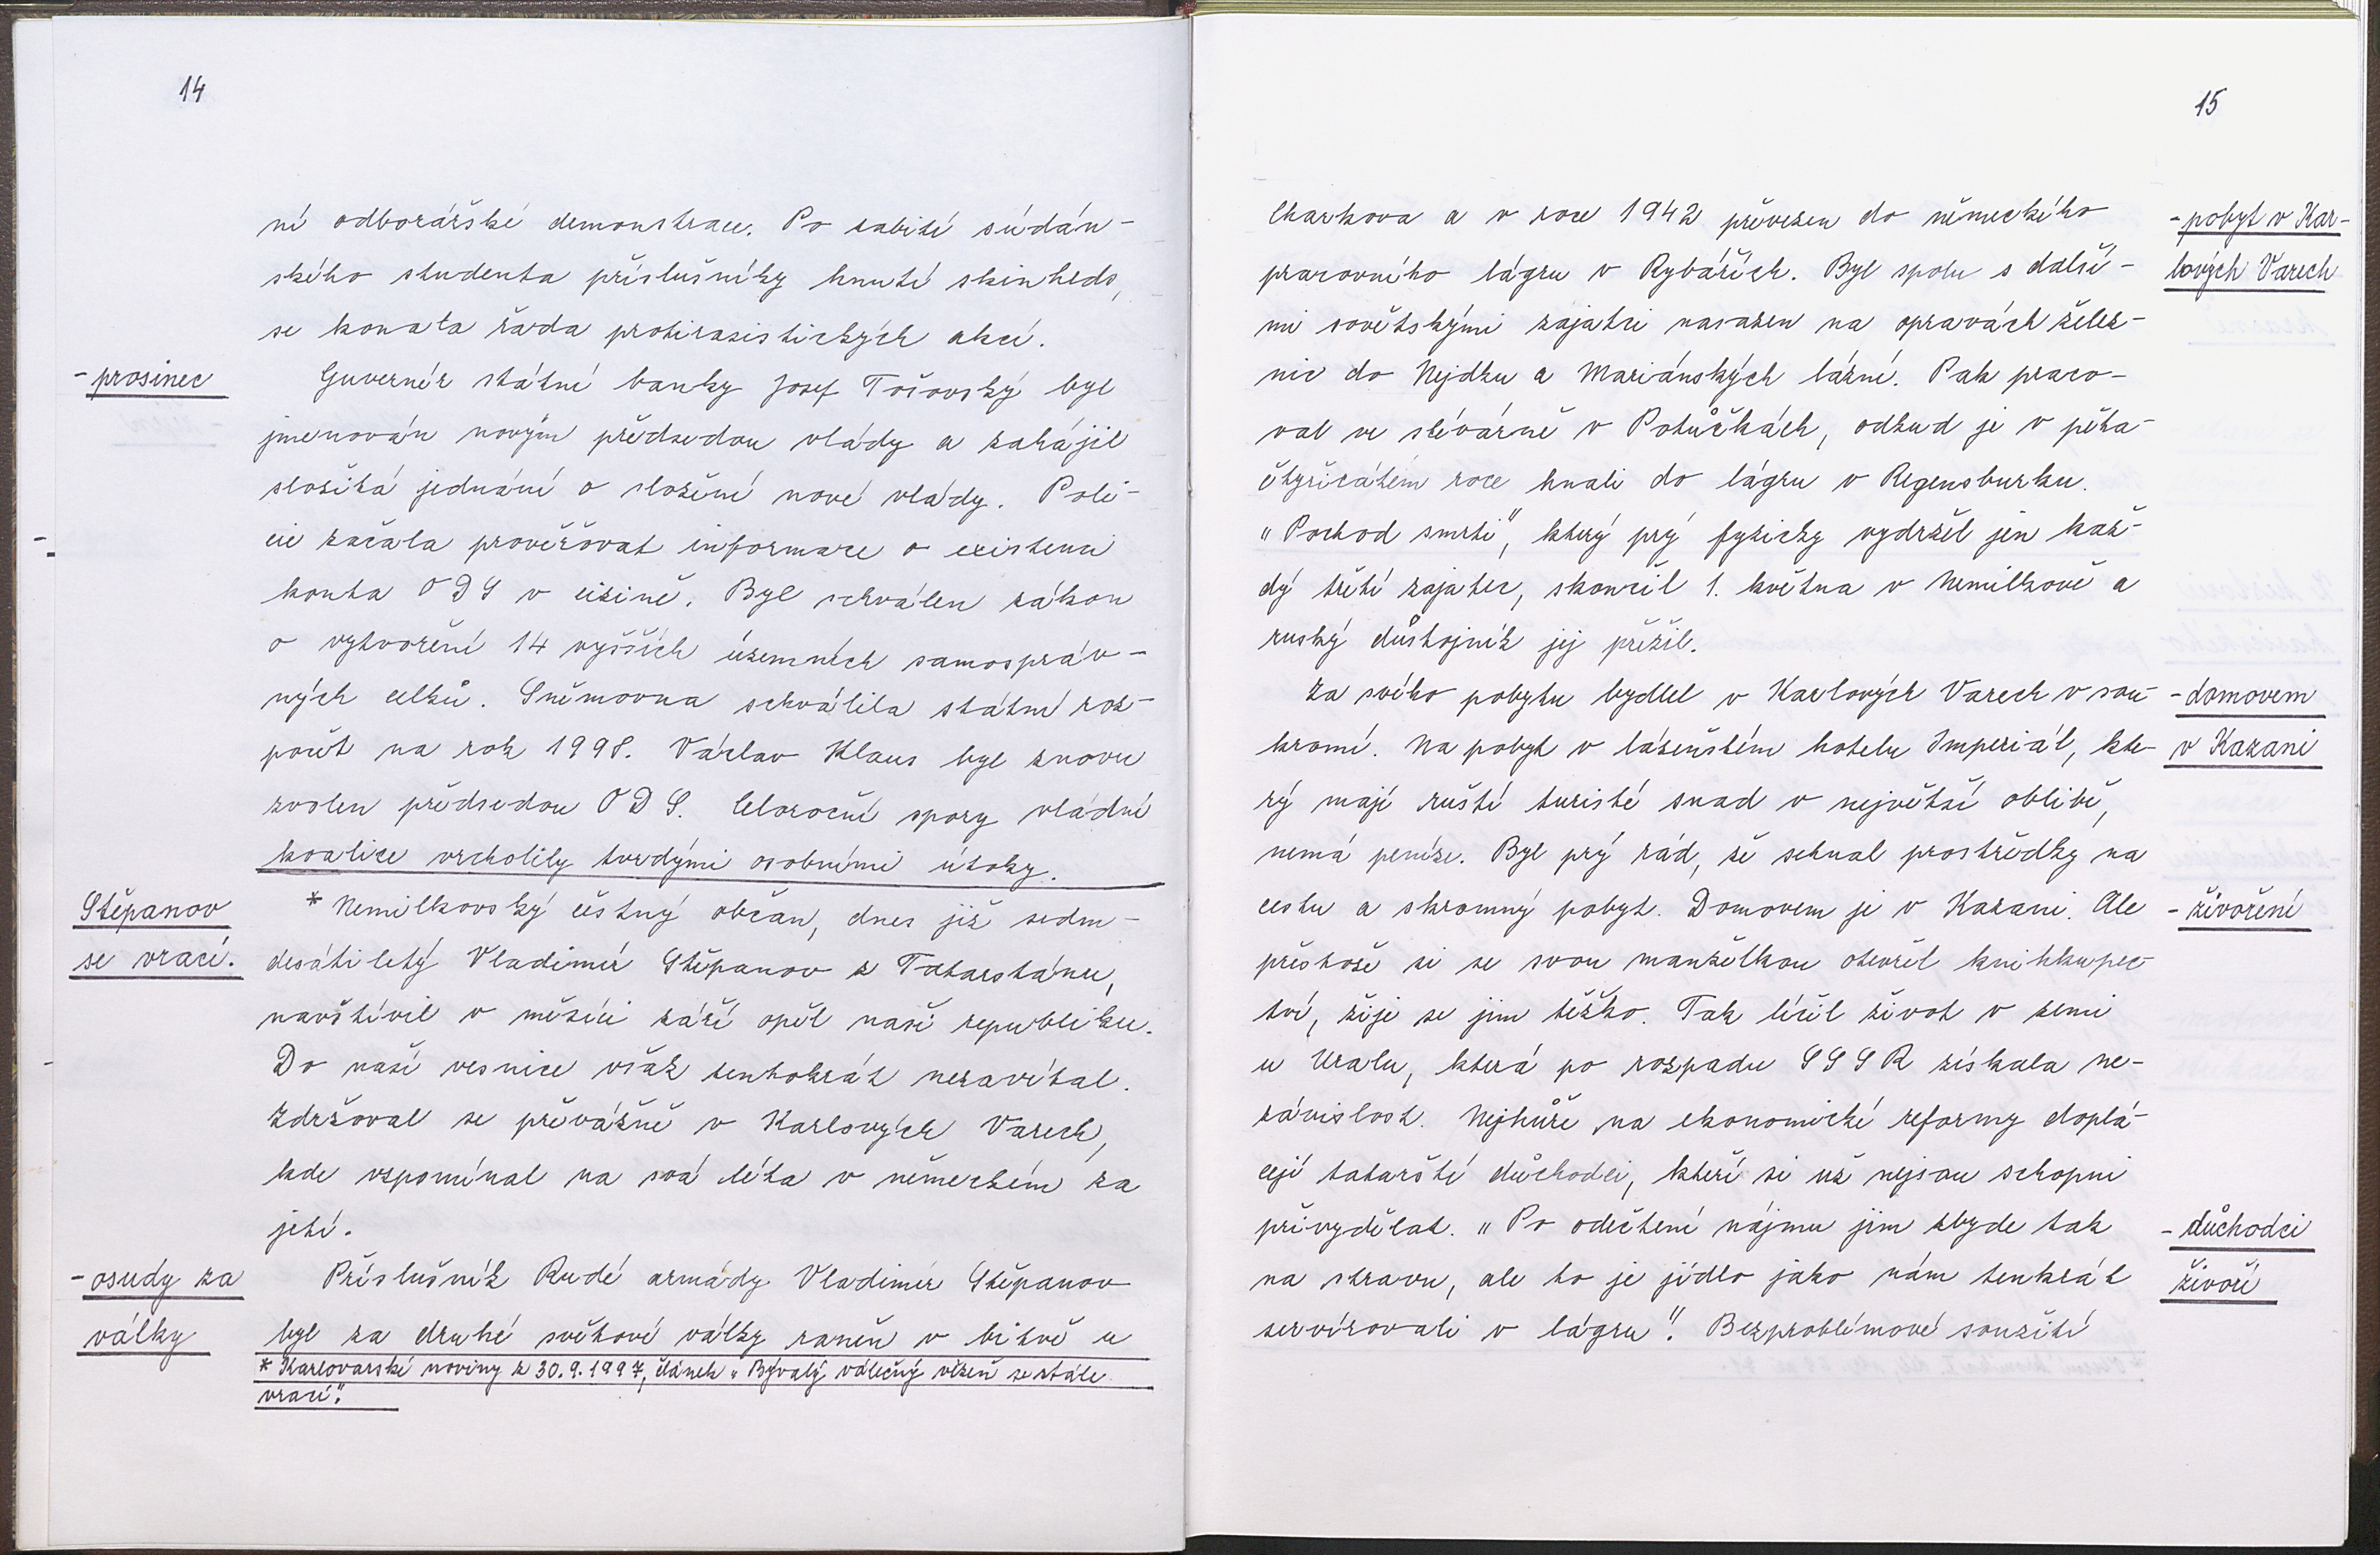 14
ní odborářské demonstrace. Po zabití súdán-
ského studenta příslušníky hnutí skinheds,
se konala řada protirasistických akcí.
- prosinec
Guvernér státní banky Josef Tošovský byl
jmenován novým předsedou vlády a zahájil
složitá jednání o složení nové vlády. Poli-
cie začala prověřovat informace o existenci
konta ODS v cizině. Byl schválen zákon
o vytvoření 14 vyšších územních samospráv-
ných celků. Sněmovna schválila státní roz-
počet na rok 1998. Václav Klaus byl znovu
zvolen předsedou ODS. Celoroční spory vládní
koalice vrcholily tvrdými osobními útoky.
Stěpanov
se vrací.
* Nemilkovský čestný občan, dnes již sedm-
desátiletý Vladimír Stěpanov z Tatarstánu,
navštívil v měsíci září opět naší republiku.
Do naší vesnice však tentokrát nezavítal.
Zdržoval se převážně v Karlových Varech,
kde vzpomínal na svá léta v německém za
jetí.
- osudy za
války
Příslušník Rudé armády Vladimír Stěpanov
byl za druhé světové války raněn v bitvě u
* Karlovarské noviny z 30.9.1997, článek „Bývalý válečný vězeň se stále
vrací".
15
Charkova a v roce 1942 převezen do německého
pracovního lágru v Rybářích. Byl spolu s další-
mi sovětskými zajatci nasazen na opravách želez-
nic do Nejdku a Mariánských lázní. Pak praco-
val ve slévárně v Potůčkách, odkud je v pěta-
čtyřicátém roce hnali do lágru v Regensburku.
„Pochod smrti", který prý fyzicky vydržel jen kaž-
dý třetí zajatec, skončil 1. května v Nemilkově a
ruský důstojník jej přežil.
- pobyt v Kar-
lových Varech
Za svého pobytu bydlel v Karlových Varech v sou-
kromí. Na pobyt v lázeňském hotelu Imperiál, kte-
rý mají ruští turisté snad v největší oblibě,
nemá peníze. Byl prý rád, že sehnal prostředky na
cestu a skromný pobyt. Domovem je v Kazani. Ale
přestože si se svou manželkou otevřel knihkupec-
tví, žije se jim těžko. Tak líčil život v zemi
u Uralu, která po rozpadu SSSR získala ne-
závislost. Nejhůře na ekonomické reformy doplá-
cejí tatarští důchodci, kteří si už nejsou schopni
přivydělat. „Po odečtení nájmu jim zbyde tak
na stravu, ale to je jídlo jako nám tenkrát
servírovali v lágru". Bezproblémové soužití
- domovem
v Kazani
- živoření
- důchodci
živoří